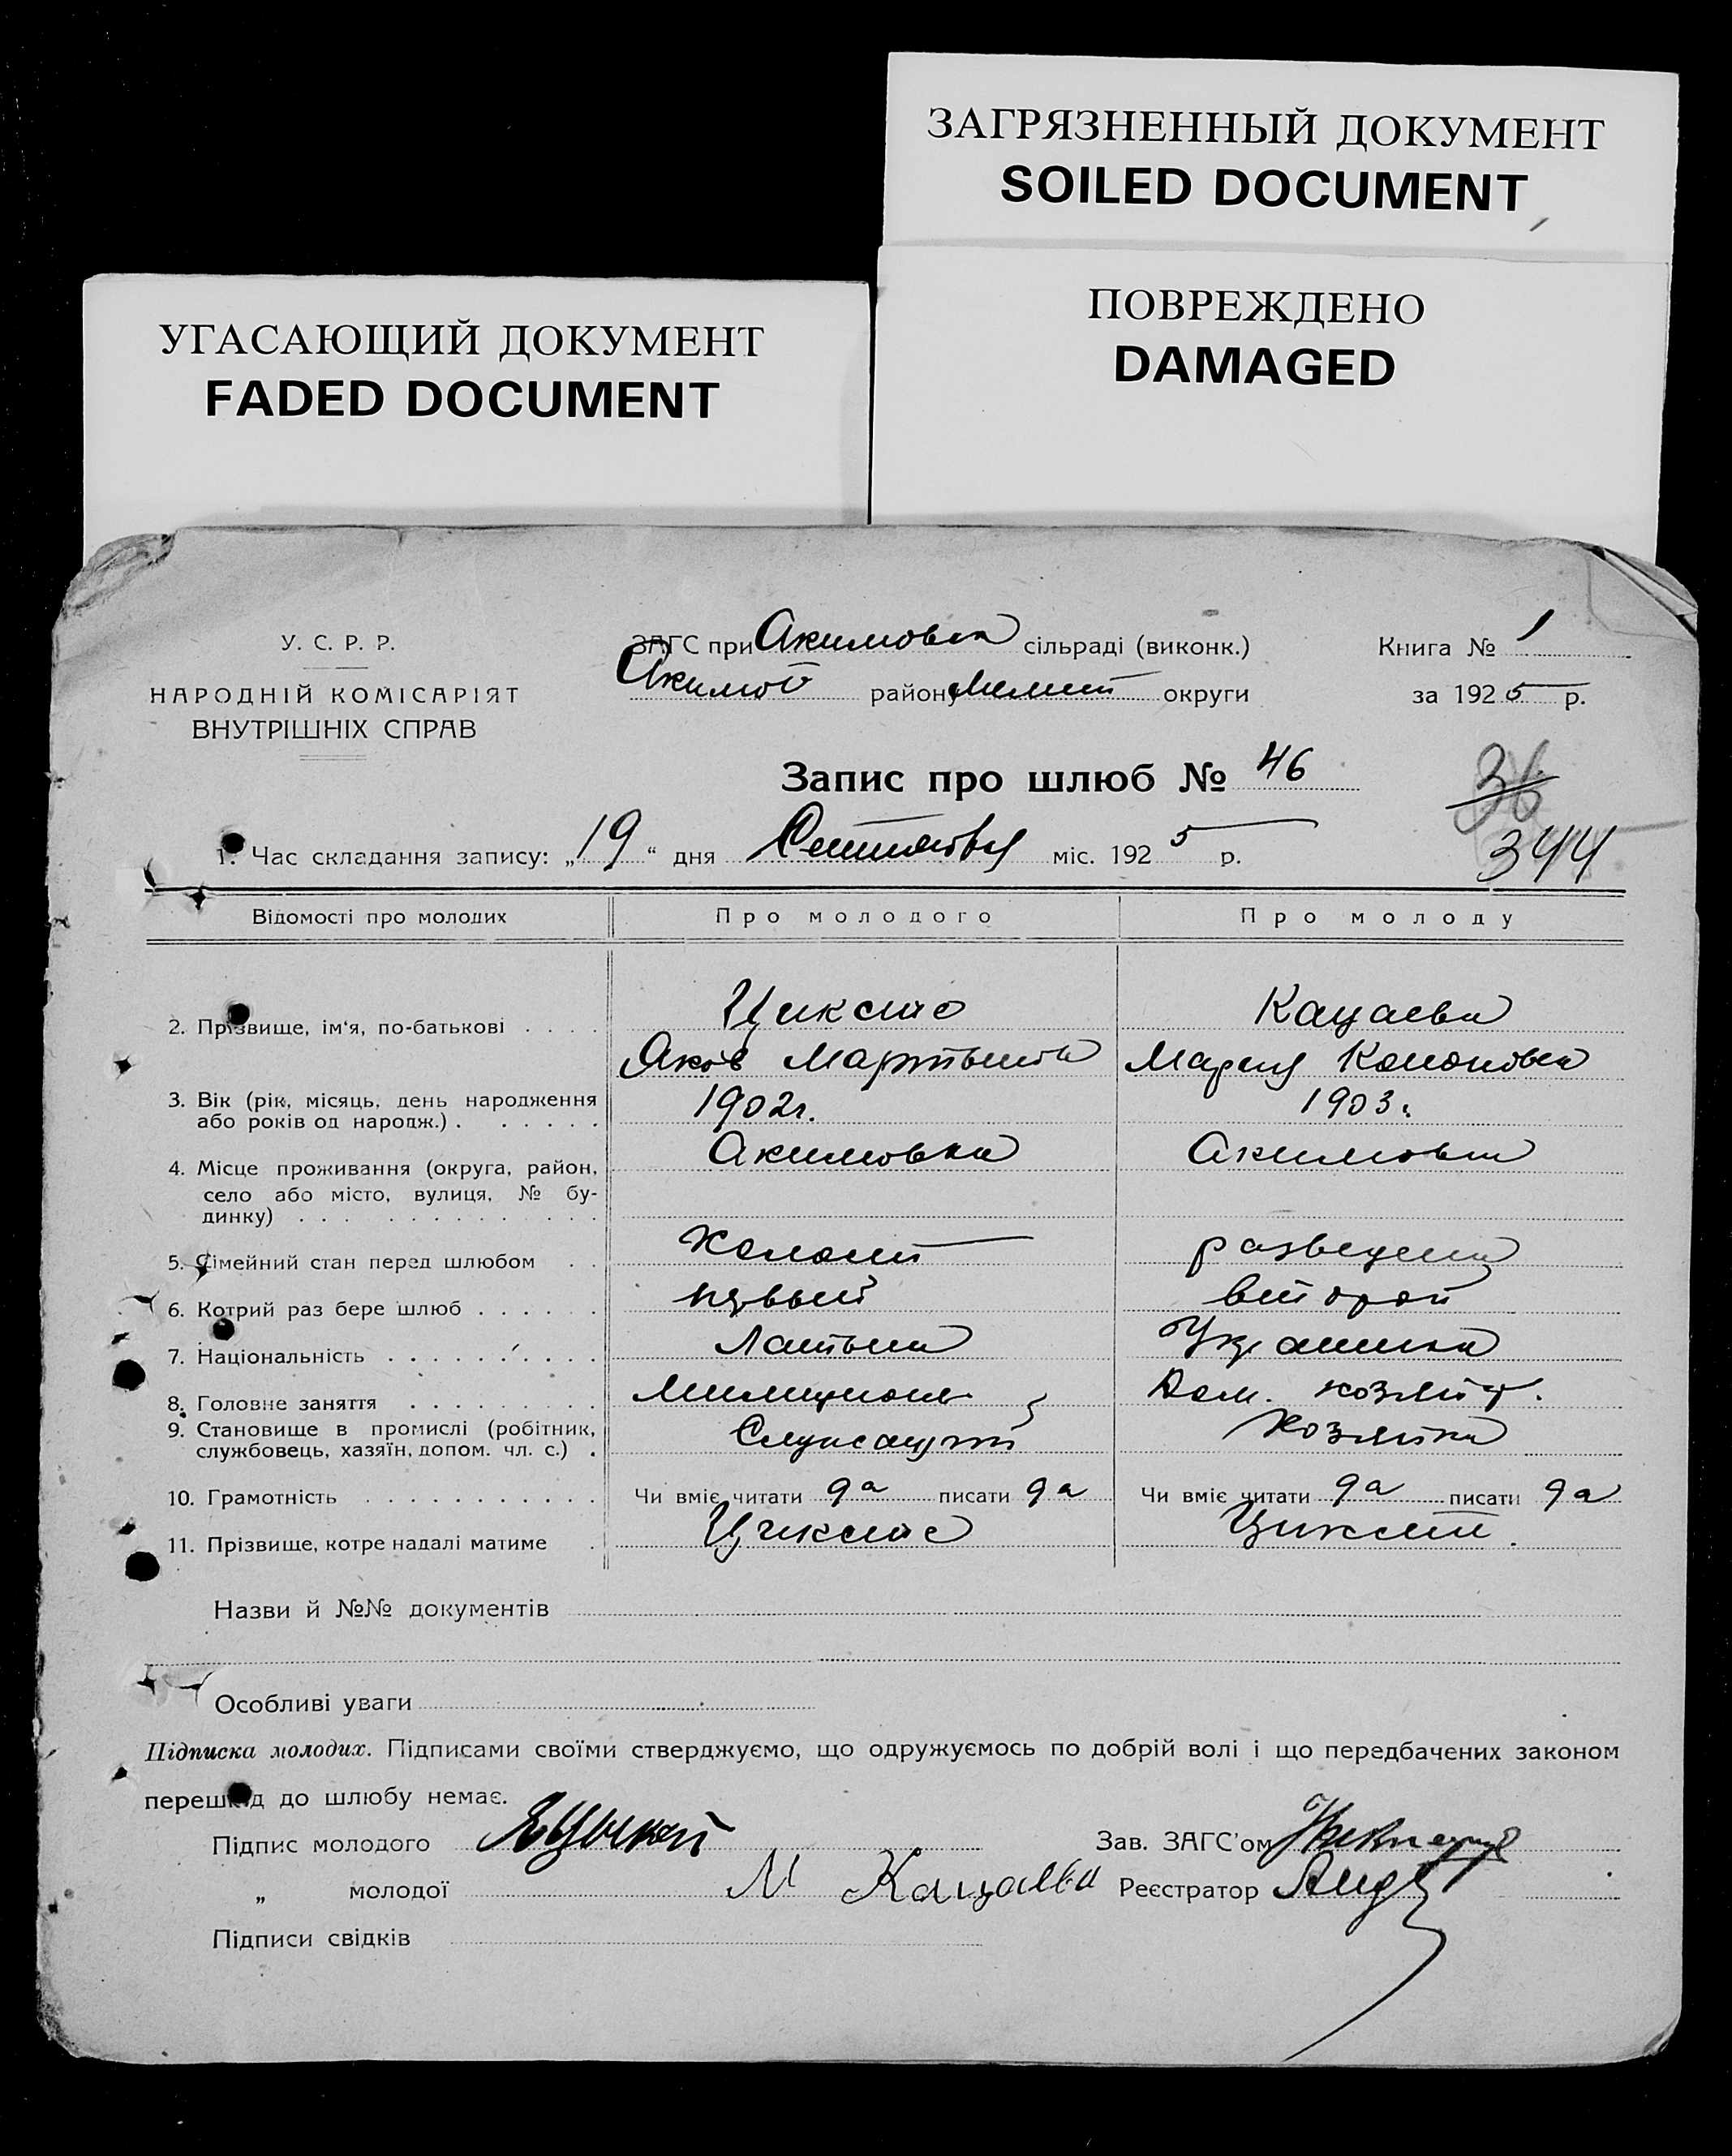 ЗАГРЯЗНЕННЫЙ ДОКУМЕНТ
SOILED DOCUMENT
ПОВРЕЖДЕНО
DAMAGED
УГАСАЮЩИЙ ДОКУМЕНТ
FADED DOCUMENT
У. С. Р. Р.
НАРОДНІЙ КОМІСАРІЯТ
ВНУТРІШНІХ СПРАВ
ЗАГС при Акимовск сільраді (виконк.)
Акимов району Мелит округи
Книга № 1
за 1925 р.
Запис про шлюб № 46
36
344
1. Час складання запису: „19“ дня Сентября міс. 1925 р.
Відомості про молодих Про молодого Про молоду
2. Прізвище, ім'я, по-батькові . . . . Циксте Кацаева
Яков Мартынов Мария Кононовна
3. Вік (рік, місяць, день народження або років од народж.) . . . . . . 1902г. 1903г.
4. Місце проживання (округа, район, село або місто, вулиця, № будинку) . . . Акимовка Акимовка
5. Сімейний стан перед шлюбом . . Холост разведена
6. Котрий раз бере шлюб . . . . . первый второй
7. Національність . . . . . . . . . Латыш Украинка
8. Головне заняття . . . . . . . . Милиционер Дом. хозяйст.
9. Становище в промислі (робітник, службовець, хазяїн, допом. чл. с.) . Служащий Хозяйка
10. Грамотність . . . . . . . . . . . Чи вміє читати да писати да Чи вміє читати да писати да
11. Прізвище, котре надалі матиме . Циксте Циксте.
Назви й №№ документів
Особливі уваги
Підписка молодих. Підписами своїми стверджуємо, що одружуємось по добрій волі і що передбачених законом
перешкод до шлюбу немає.
Підпис молодого Зав. ЗАГС'ом
„ молодої М Кацаева Реєстратор
Підписи свідків